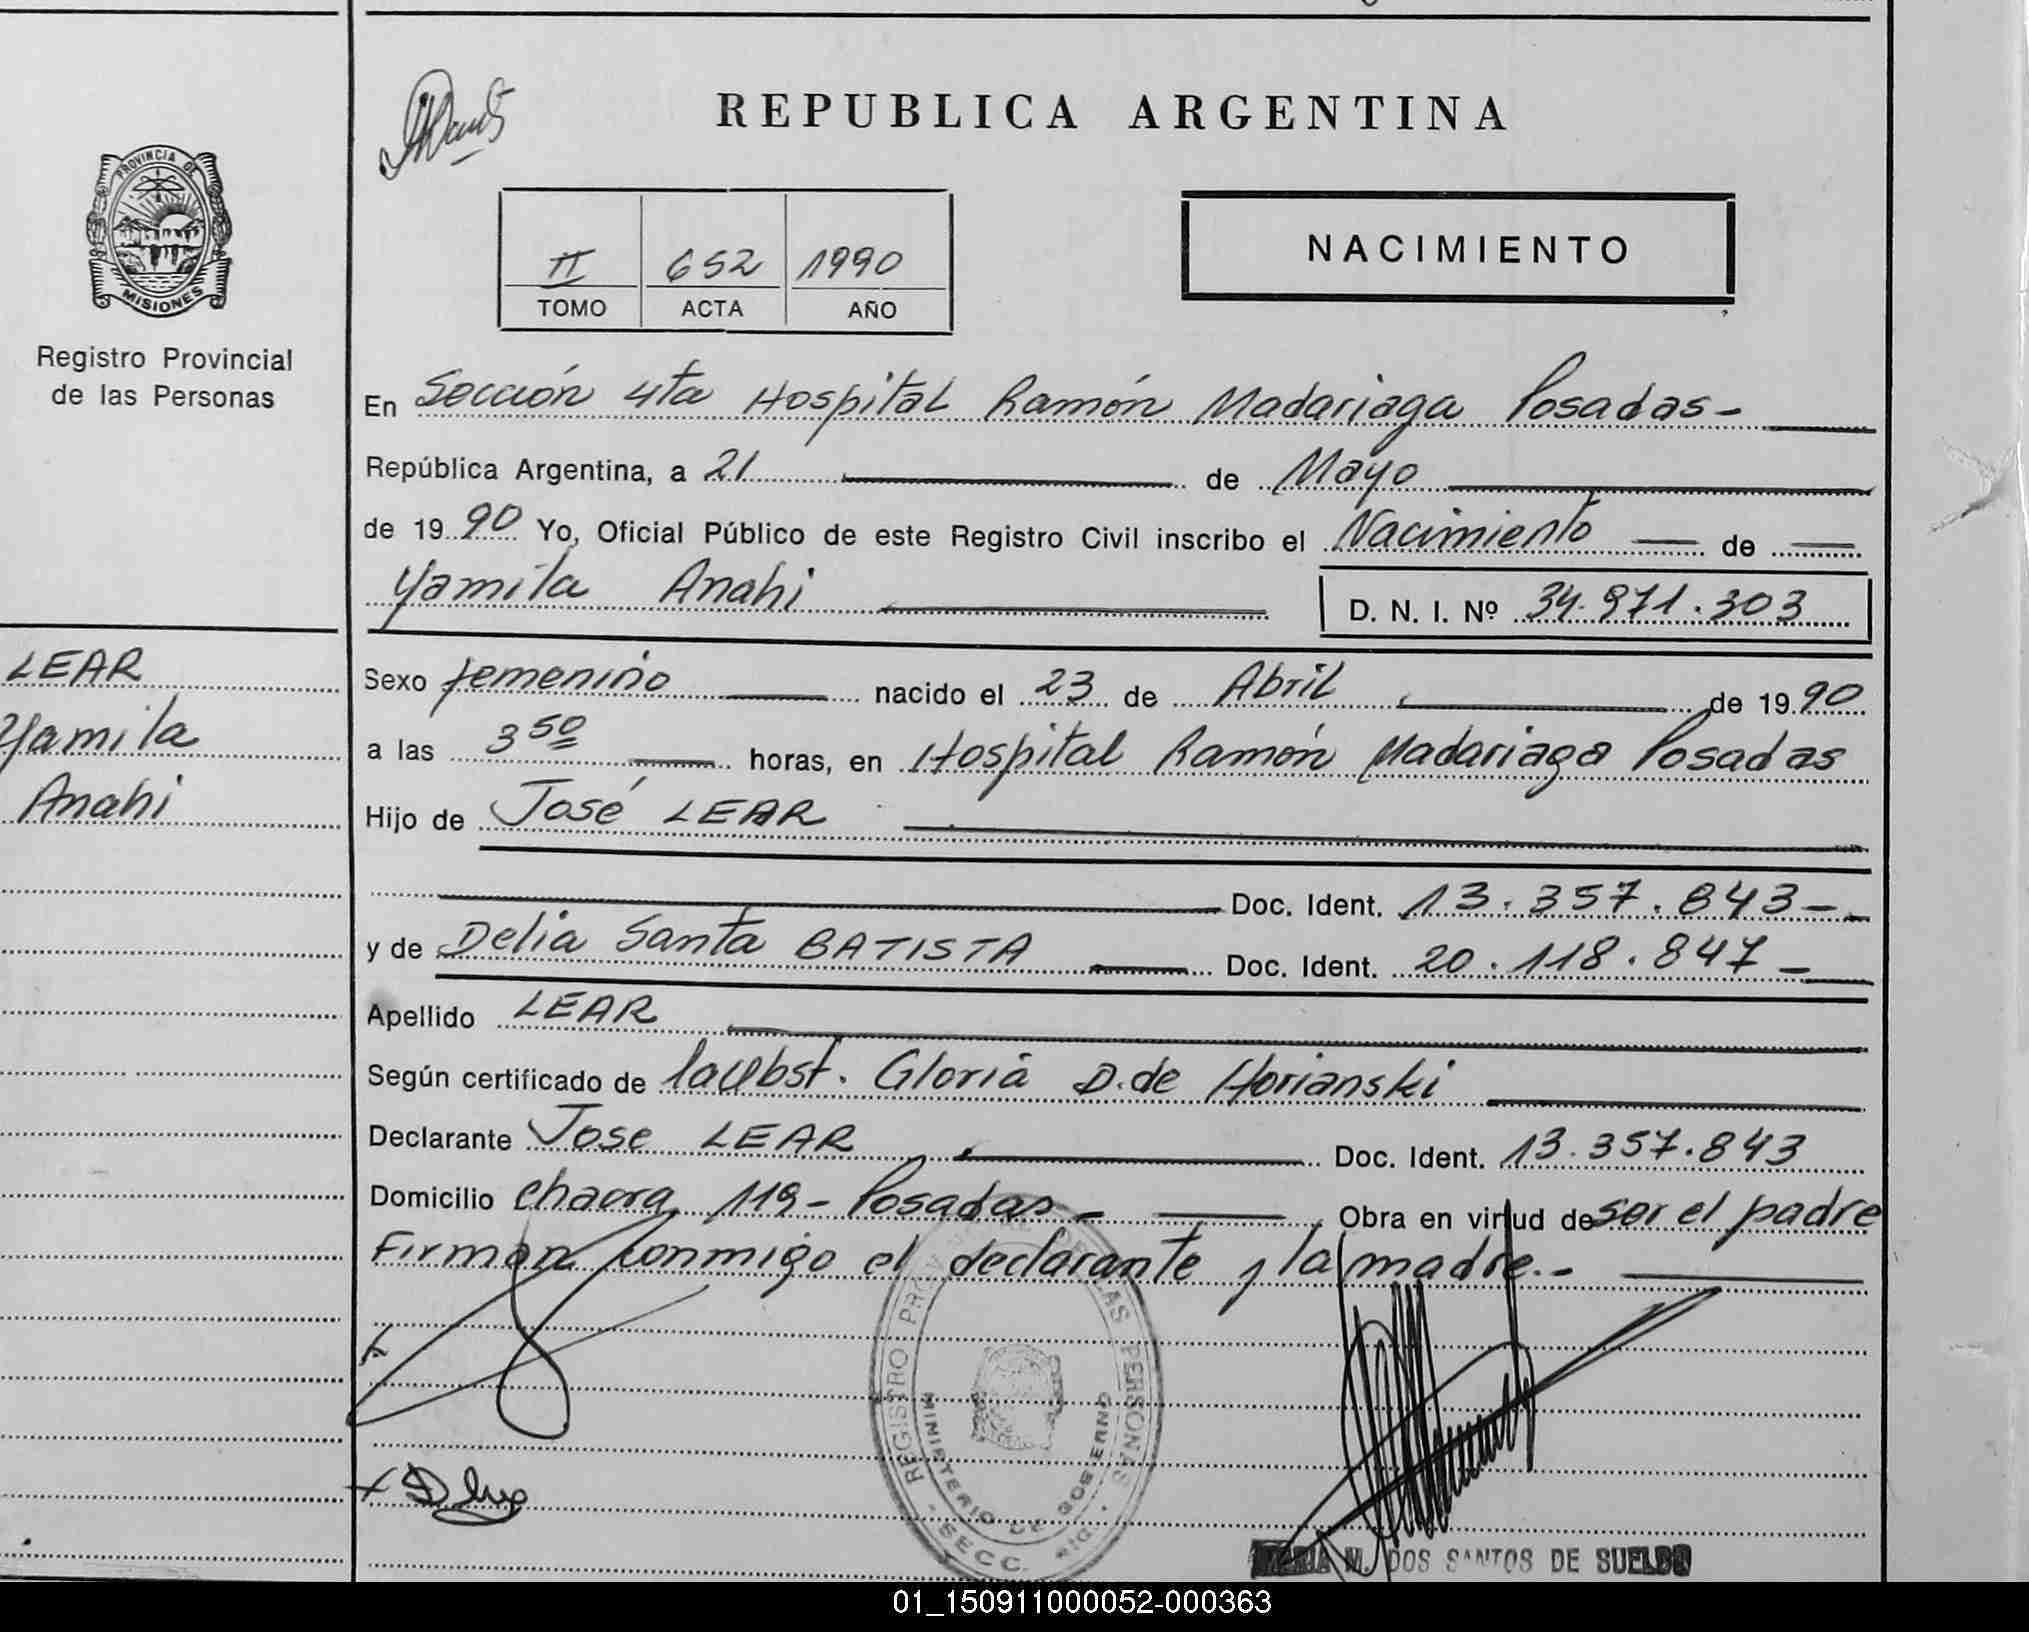 REPUBLICA ARGENTINA
PROVINCIA DE
MISIONES
Registro Provincial
de las Personas
II 652 1990
TOMO ACTA AÑO
NACIMIENTO
En Sección 4ta Hospital Ramón Madariaga Posadas-
República Argentina, a 21 de Mayo
de 1990 Yo, Oficial Público de este Registro Civil inscribo el Nacimiento de
Yamila Anahi D. N. I. Nº 34.971.303
LEAR
Yamila
Anahi
Sexo femenino nacido el 23 de Abril de 1990
a las 3 50 horas, en Hospital Ramón Madariaga Posadas
Hijo de José LEAR
Doc. Ident. 13.357.843-
y de Delia Santa BATISTA Doc. Ident. 20.118.847-
Apellido LEAR
Según certificado de la Obst. Gloria D. de Horianski
Declarante Jose LEAR Doc. Ident. 13.357.843
Domicilio chacra 119- Posadas- Obra en virtud de ser el padre
Firman conmigo el declarante y la madre.-
REGISTRO PROVINCIAL DE LAS PERSONAS
MINISTERIO DE GOBIERNO
SECC.
MARIA M. DOS SANTOS DE SUELDO
01_150911000052-000363